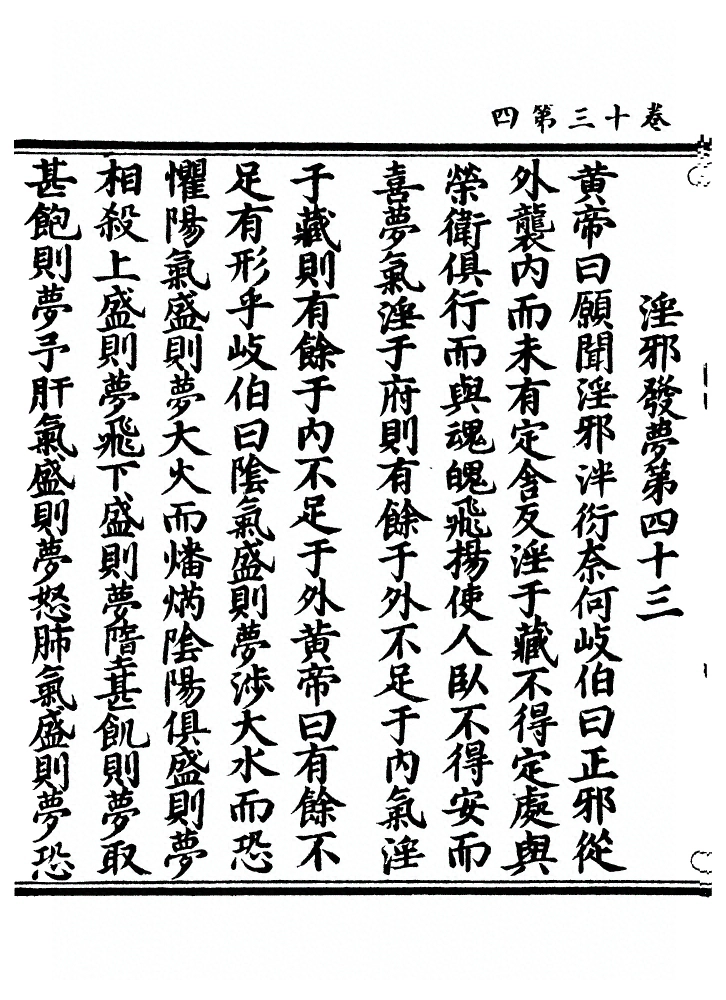 卷十三第四
淫邪發夢第四十三
黃帝曰願聞淫邪泮衍奈何岐伯曰正邪從
外襲內而未有定舍反淫于藏不得定處與
榮衛俱行而與魂魄飛揚使人臥不得安而
喜夢氣淫于府則有餘于外不足于內氣淫
于藏則有餘于內不足于外黃帝曰有餘不
足有形乎岐伯曰陰氣盛則夢涉大水而恐
懼陽氣盛則夢大火而燔焫陰陽俱盛則夢
相殺上盛則夢飛下盛則夢墮甚飢則夢取
甚飽則夢予肝氣盛則夢怒肺氣盛則夢恐